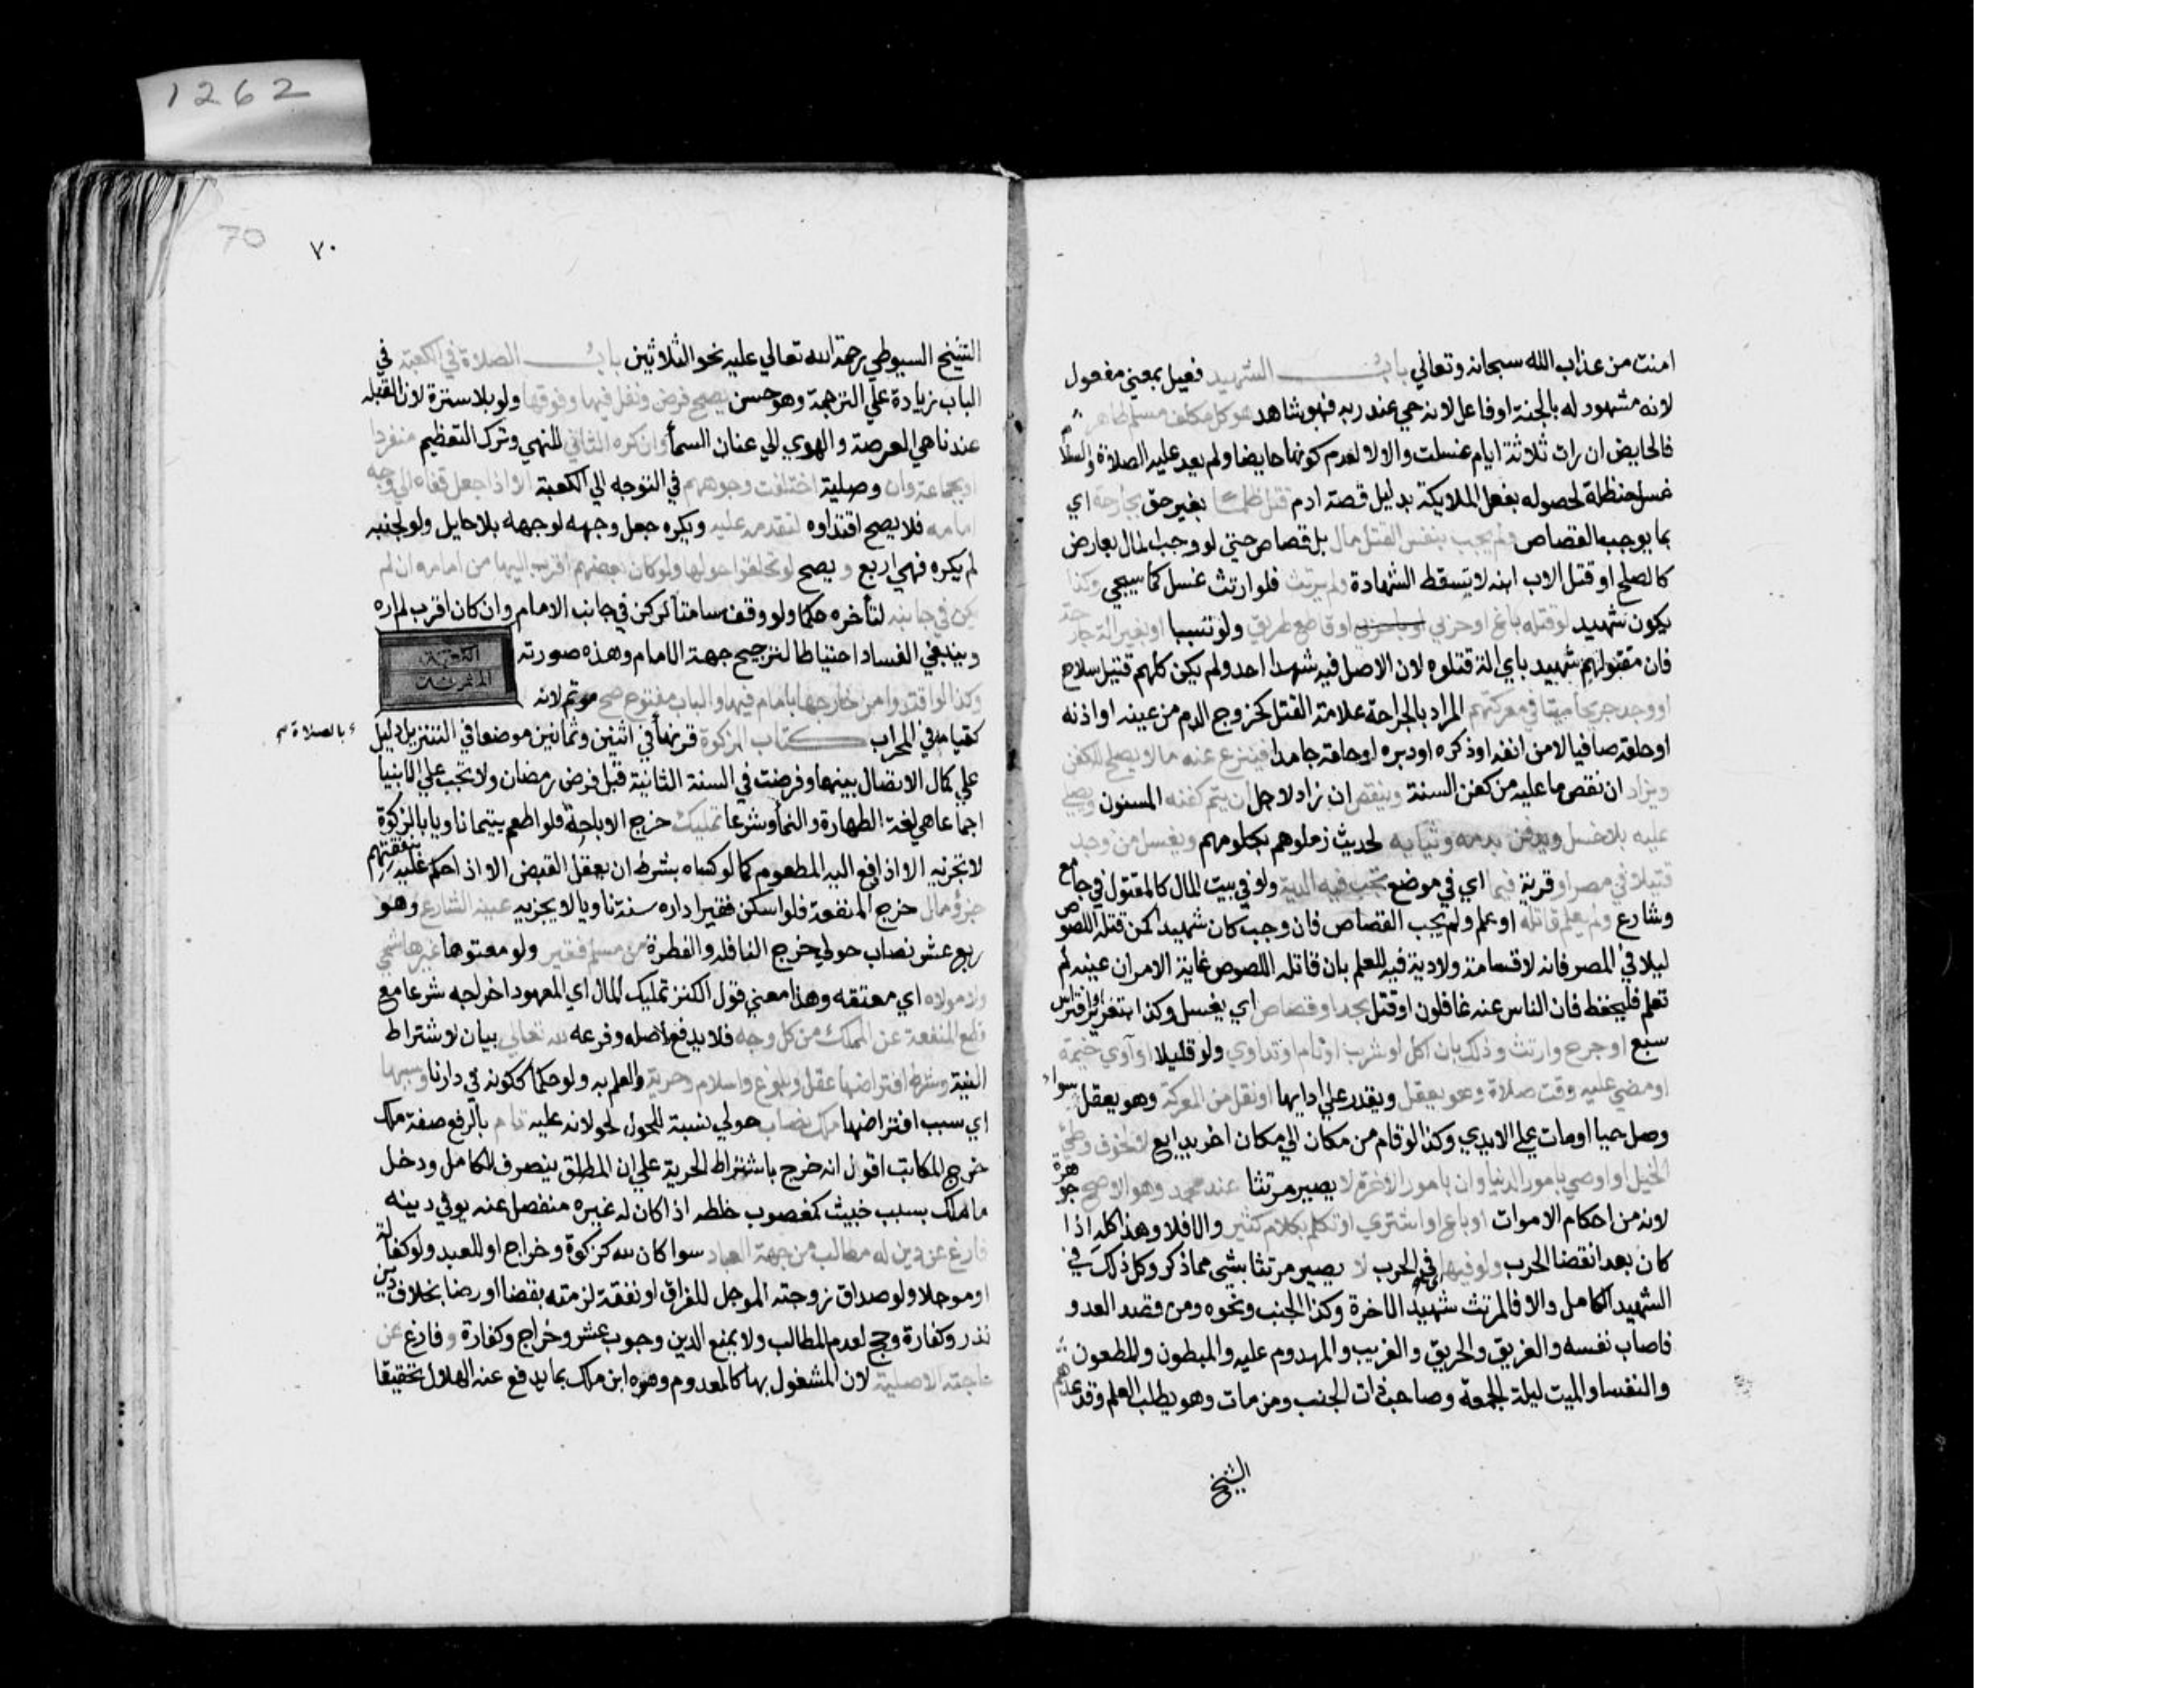 1262
امنت من عذاب الله سبحانه وتعالي باب الشهيد فعيل بمعني مفعول
لانه مشهود له بالجنة او فاعل لانه حي عند ربه فهو شاهد هو كل مكلف مسلم طاهر
فالحايض ان رات ثلاثة ايام غسلت والا لا لعدم كونها حايضا ولم يعد عليه الصلاة والسلام
غسل حنظلة لحصوله بفعل الملايكة بدليل قصة ادم قتل ظلما بغير حق بجارحة اي
بما يوجب القصاص ولم يجب بنفس القتل مال بل قصاص حتي لو وجب المال بعارض
كالصلح او قتل الاب ابنه لا تسقط الشهادة ولم يرتث فلو ارتث غسل كما سيجي وكذا
يكون شهيد لو قتله باغ او حربي او قاطع طريق ولو تسببا او بغير الة جارحة
فان مقتولهم شهيد باي الة قتلوه لان الاصل فيه شهدا احد ولم يكن كلهم قتيل سلاح
او وجد جريحا ميتا في معركتهم المراد بالجراحة علامة القتل كخروج الدم من عينه او اذنه
او حلقه صافيا لا من انفه او ذكره او دبره او حلقه جامدا فينزع عنه ما لا يصلح للكفن
ويزاد ان نقص ما عليه من كفن السنة وينقص ان زاد لاجل ان يتم كفنه المسنون ويصلي
عليه بلا غسل ويدفن بدمه وثيابه لحديث زملوهم بكلومهم ويغسل من وجد
قتيلا في مصر او قرية فيما اي في موضع تجب فيه الدية ولو في بيت المال كالمقتول في جامع
وشارع ولم يعلم قاتله او علم ولم يجب القصاص فان وجب كان شهيدا كمن قتله اللصوص
ليلا في المصر فانه لا قسامة ولا دية فيه للعلم بان قاتله اللصوص غاية الامر ان عينه لم
تعلم فليحفظ فان الناس عنه غافلون او قتل بحد او قصاص اي يغسل وكذا بتعزير او افتراس
سبع او جرح وارتث وذلك بان اكل او شرب او نام او تداوي ولو قليلا او آوي خيمة
او مضي عليه وقت صلاة وهو يعقل ويقدر علي ادايها او نقل من المعركة وهو يعقل سواء
وصل حيا او مات علي الايدي وكذا لو قام من مكان الي مكان اخر بدايع لا لخوف وطئ
الخيل او اوصي بامور الدنيا وان بامور الاخرة لا يصير مرتثا عند محمد وهو الاصح جوهرة
لانه من احكام الاموات او باع او اشتري او تكلم بكلام كثير والا فلا وهذا كله اذا
كان بعد انقضا الحرب ولو فيها في الحرب لا يصير مرتثا بشي مما ذكر وكل ذلك في
الشهيد الكامل والا فالمرتث شهيد الاخرة وكذا الجنب ونحوه ومن قصد العدو
فاصاب نفسه والغريق والحريق والغريب والمهدوم عليه والمبطون والمطعون
والنفسا والميت ليلة الجمعة وصاحب ذات الجنب ومن مات وهو يطلب العلم وقد عدهم
الشيخ
70 ٧٠
الشيخ السيوطي رحمة الله تعالي عليه نحو الثلاثين باب الصلاة في الكعبة في
الباب زيادة علي الترجمة وهو حسن يصح فرض ونفل فيها وفوقها ولو بلا سترة لان القبله
عندنا هي العرصة والهوي الي عنان السما وان كره الثاني للنهي وترك التعظيم منفردا
او بجماعة وان وصلية اختلفت وجوههم في التوجه الي الكعبة الا اذا جعل قفاه الي وجه
امامه فلا يصح اقتداوه لتقدمه عليه ويكره جعل وجهه لوجهه بلا حايل ولو لجنبه
لم يكره فهي اربع ويصح لو تحلقوا حولها ولو كان بعضهم اقرب اليها من امامه ان لم
يكن في جانبه لتأخره حكما ولو وقف مسامتا لركن في جانب الامام وان كان اقرب لم اره
وينبغي الفساد احتياطا لترجيح جهة الامام وهذه صورته
الكعبة
المشرفة
وكذا لو اقتدوا من خارجها بامام فيها والباب مفتوح صح موتم لانه
كقيامه في المحراب كتاب الزكوة قرنها في اثنين وثمانين موضعا في التنزيل دليل
بالصلاة
علي كمال الاتصال بينهما وفرضت في السنة الثانية قبل فرض رمضان ولا تجب علي الانبيا
اجماعا هي لغة الطهارة والنما وشرعا تمليك خرج الاباحة فلو اطعم يتيما ناويا بالزكوة
لا تجزيه الا اذا دفع اليه المطعوم كما لو كساه بشرط ان يعقل القبض الا اذا حكم عليه بنفقتهم
جزؤ مال خرج المنفعة فلو اسكن فقيرا داره سنة ناويا لا يجزيه عينه الشارع وهو
ربع عشر نصاب حولي خرج النافلة والفطرة من مسلم فقير ولو معتوها غير هاشمي
ولا مولاه اي معتقه وهذا معني قول الكنز تمليك المال اي المعهود اخراجه شرعا مع
قطع المنفعة عن المملك من كل وجه فلا يدفع لاصله وفرعه لله تعالي بيان لاشتراط
النية وشرط افتراضها عقل وبلوغ واسلام وحرية والعلم به ولو حكما ككونه في دارنا وسببها
اي سبب افتراضها ملك نصاب حولي نسبة للحول لحولانه عليه تام بالرفع صفة ملك
خرج المكاتب اقول انه خرج باشتراط الحرية علي ان المطلق ينصرف للكامل ودخل
ما ملك بسبب خبيث كمغصوب خلطه اذا كان له غيره منفصل عنه يوفي دينه
فارغ عن دين له مطالب من جهة العباد سوا كان لله كزكوة وخراج او للعبد ولو كفالة
او موجلا ولو صداق زوجته الموجل للفراق او نفقة لزمته بقضا او رضا بخلاف دين
نذر وكفارة وحج لعدم المطالب ولا يمنع الدين وجوب عشر وخراج وكفارة وفارغ عن
حاجته الاصلية لان المشغول بها كالمعدوم وفسره ابن ملك بما يدفع عنه الهلاك تحقيقا